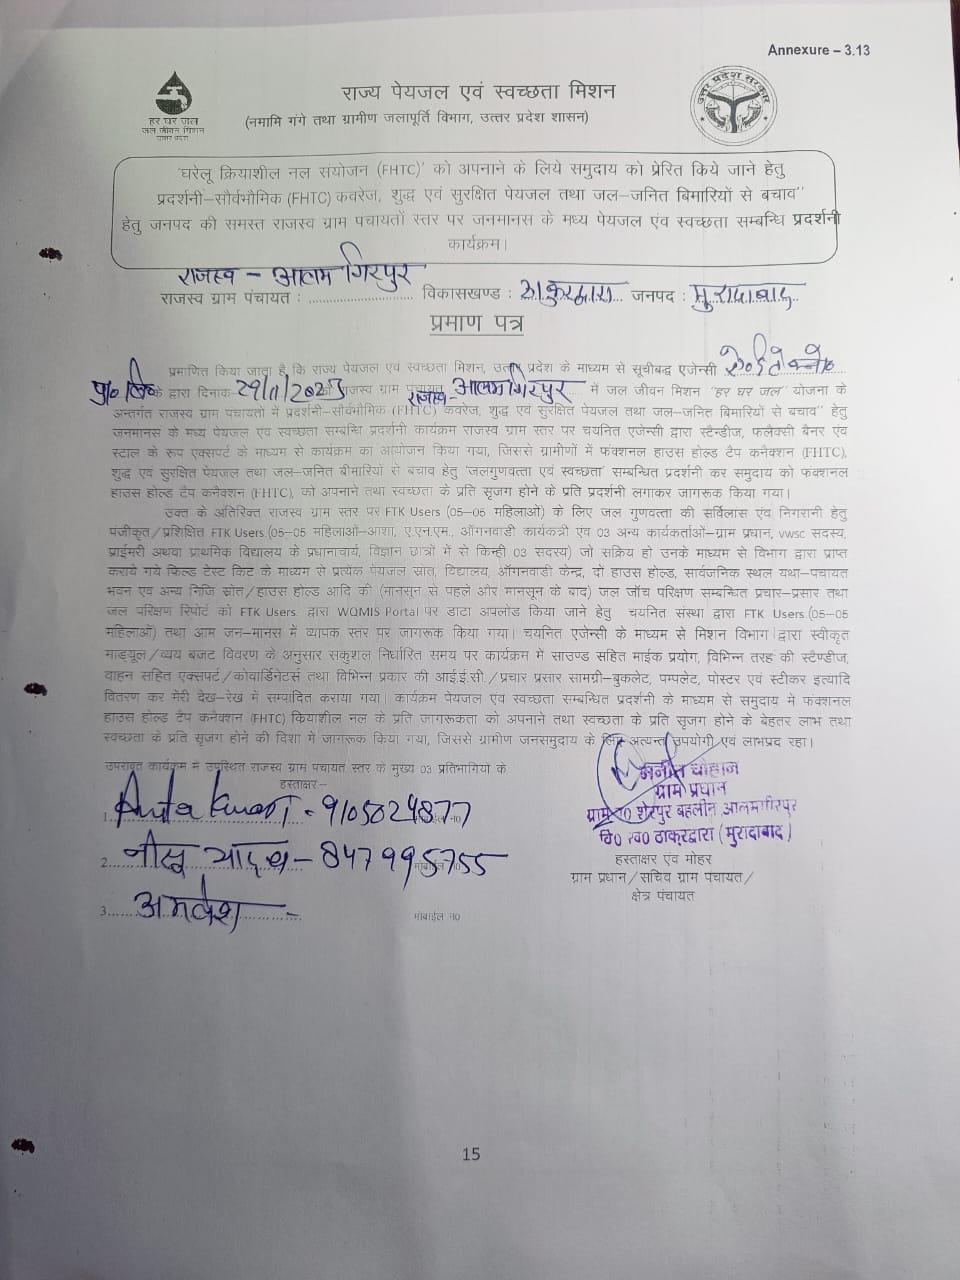 Annexure – 3.13
हर घर जल
जल जीवन मिशन
उत्तर प्रदेश
राज्य पेयजल एवं स्वच्छता मिशन
(नमामि गंगे तथा ग्रामीण जलापूर्ति विभाग, उत्तर प्रदेश शासन)
उत्तर प्रदेश सरकार
'घरेलू क्रियाशील नल संयोजन (FHTC)' को अपनाने के लिये समुदाय को प्रेरित किये जाने हेतु
प्रदर्शनी–सौर्वभौमिक (FHTC) कवरेज, शुद्ध एवं सुरक्षित पेयजल तथा जल–जनित बिमारियों से बचाव"
हेतु जनपद की समस्त राजस्व ग्राम पंचायतों स्तर पर जनमानस के मध्य पेयजल एंव स्वच्छता सम्बन्धि प्रदर्शनी
कार्यक्रम।
राजस्व – आलमगिरपुर
राजस्व ग्राम पंचायत : विकासखण्ड : ठाकुरद्वारा जनपद : मुरादाबाद
प्रमाण पत्र
प्रमाणित किया जाता है कि राज्य पेयजल एवं स्वच्छता मिशन, उत्तर प्रदेश के माध्यम से सूचीबद्ध एजेन्सी
प्रा० लि० के द्वारा दिनाक 29/11/2025 को राजस्व ग्राम पंचायत राजस्व- आलमगिरपुर में जल जीवन मिशन "हर घर जल" योजना के
अन्तर्गत राजस्व ग्राम पंचायतों में प्रदर्शनी–सौर्वभौमिक (FHTC) कवरेज, शुद्ध एवं सुरक्षित पेयजल तथा जल–जनित बिमारियों से बचाव" हेतु
जनमानस के मध्य पेयजल एंव स्वच्छता सम्बन्धि प्रदर्शनी कार्यक्रम राजस्व ग्राम स्तर पर चयनित एजेन्सी द्वारा स्टैन्डीज, फलैक्सी बैनर एंव
स्टाल के रूप एक्सपर्ट के माध्यम से कार्यक्रम का आयोजन किया गया, जिससे ग्रामीणों में फंक्शनल हाउस होल्ड टैप कनैक्शन (FHTC),
शुद्ध एंव सुरक्षित पेयजल तथा जल–जनित बीमारियों से बचाव हेतु 'जलगुणवत्ता एवं स्वच्छता' सम्बन्धित प्रदर्शनी कर समुदाय को फंक्शनल
हाउस होल्ड टैप कनैक्शन (FHTC), को अपनाने तथा स्वच्छता के प्रति सृजग होने के प्रति प्रदर्शनी लगाकर जागरूक किया गया।
उक्त के अतिरिक्त राजस्व ग्राम स्तर पर FTK Users (05–05 महिलाओं) के लिए जल गुणवत्ता की सर्विलांस एंव निगरानी हेतु
पंजीकृत/प्रशिक्षित FTK Users (05–05 महिलाओं–आशा, ए.एन.एम., आँगनवाडी कार्यकत्री एंव 03 अन्य कार्यकर्ताओं–ग्राम प्रधान, vwsc सदस्य,
प्राईमरी अथवा प्राथमिक विद्यालय के प्रधानाचार्य, विज्ञान छात्रों में से किन्ही 03 सदस्य) जो सक्रिय हो उनके माध्यम से विभाग द्वारा प्राप्त
कराये गये फिल्ड टेस्ट किट के माध्यम से प्रत्येक पेयजल स्रोत, विद्यालय, ऑगनवाडी केन्द्र, दो हाउस होल्ड, सार्वजनिक स्थल यथा–पंचायत
भवन एंव अन्य निजि स्रोत/हाउस होल्ड आदि की (मानसून से पहले और मानसून के बाद) जल जाँच परिक्षण सम्बन्धित प्रचार–प्रसार तथा
जल परिक्षण रिपोर्ट को FTK Users द्वारा WQMIS Portal पर डाटा अपलोड किया जाने हेतु चयनित संस्था द्वारा FTK Users (05–05
महिलाओं) तथा आम जन–मानस में व्यापक स्तर पर जागरूक किया गया। चयनित एजेन्सी के माध्यम से मिशन विभाग द्वारा स्वीकृत
माड्यूल/व्यय बजट विवरण के अनुसार सकुशल निर्धारित समय पर कार्यक्रम में साउण्ड सहित माईक प्रयोग, विभिन्न तरह की स्टैण्डीज,
वाहन सहित एक्सपर्ट/कोवार्डिनेटर्स तथा विभिन्न प्रकार की आई.ई.सी./प्रचार प्रसार सामग्री–बुकलेट, पम्पलेट, पोस्टर एंव स्टीकर इत्यादि
वितरण कर मेरी देख–रेख में सम्पादित कराया गया। कार्यक्रम पेयजल एंव स्वच्छता सम्बन्धित प्रदर्शनी के माध्यम से समुदाय में फंक्शनल
हाउस होल्ड टैप कनैक्शन (FHTC) कियाशील नल के प्रति जागरूकता को अपनाने तथा स्वच्छता के प्रति सृजग होने के बेहतर लाभ तथा
स्वच्छता के प्रति सृजग होने की दिशा में जागरूक किया गया, जिससे ग्रामीण जनसमुदाय के लिए अत्यन्त उपयोगी एवं लाभप्रद रहा।
उपरोक्त कार्यक्रम में उपस्थित राजस्व ग्राम पंचायत स्तर के मुख्य 03 प्रतिभागियों के
हस्ताक्षर–
1. Anita Kumari - 9105024877 मोबाईल न0
2. नीसू यादव – 847995755 मोबाईल न0
3. अमरेश – मोबाईल न0
मनीत चौहान
ग्राम प्रधान
ग्राम पं० शेरपुर बहलीन आलमगीरपुर
वि० ख० ठाकुरद्वारा (मुरादाबाद)
हस्ताक्षर एंव मोहर
ग्राम प्रधान/सचिव ग्राम पंचायत/
क्षेत्र पंचायत
15